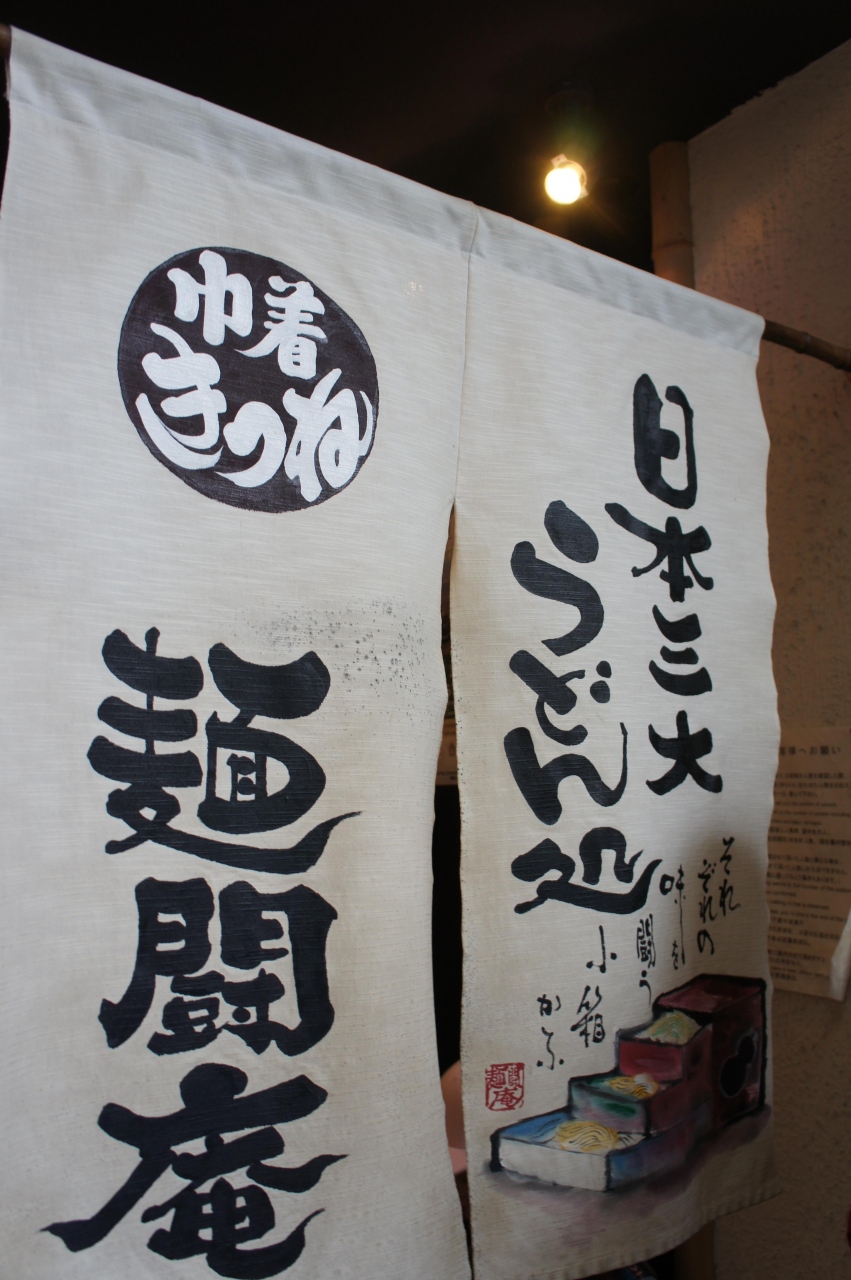 巾着
きつね
麺闘庵
日本三大
うどん処
それ
ぞれの
味しを
闘う
小箱
かな
麺闘庵